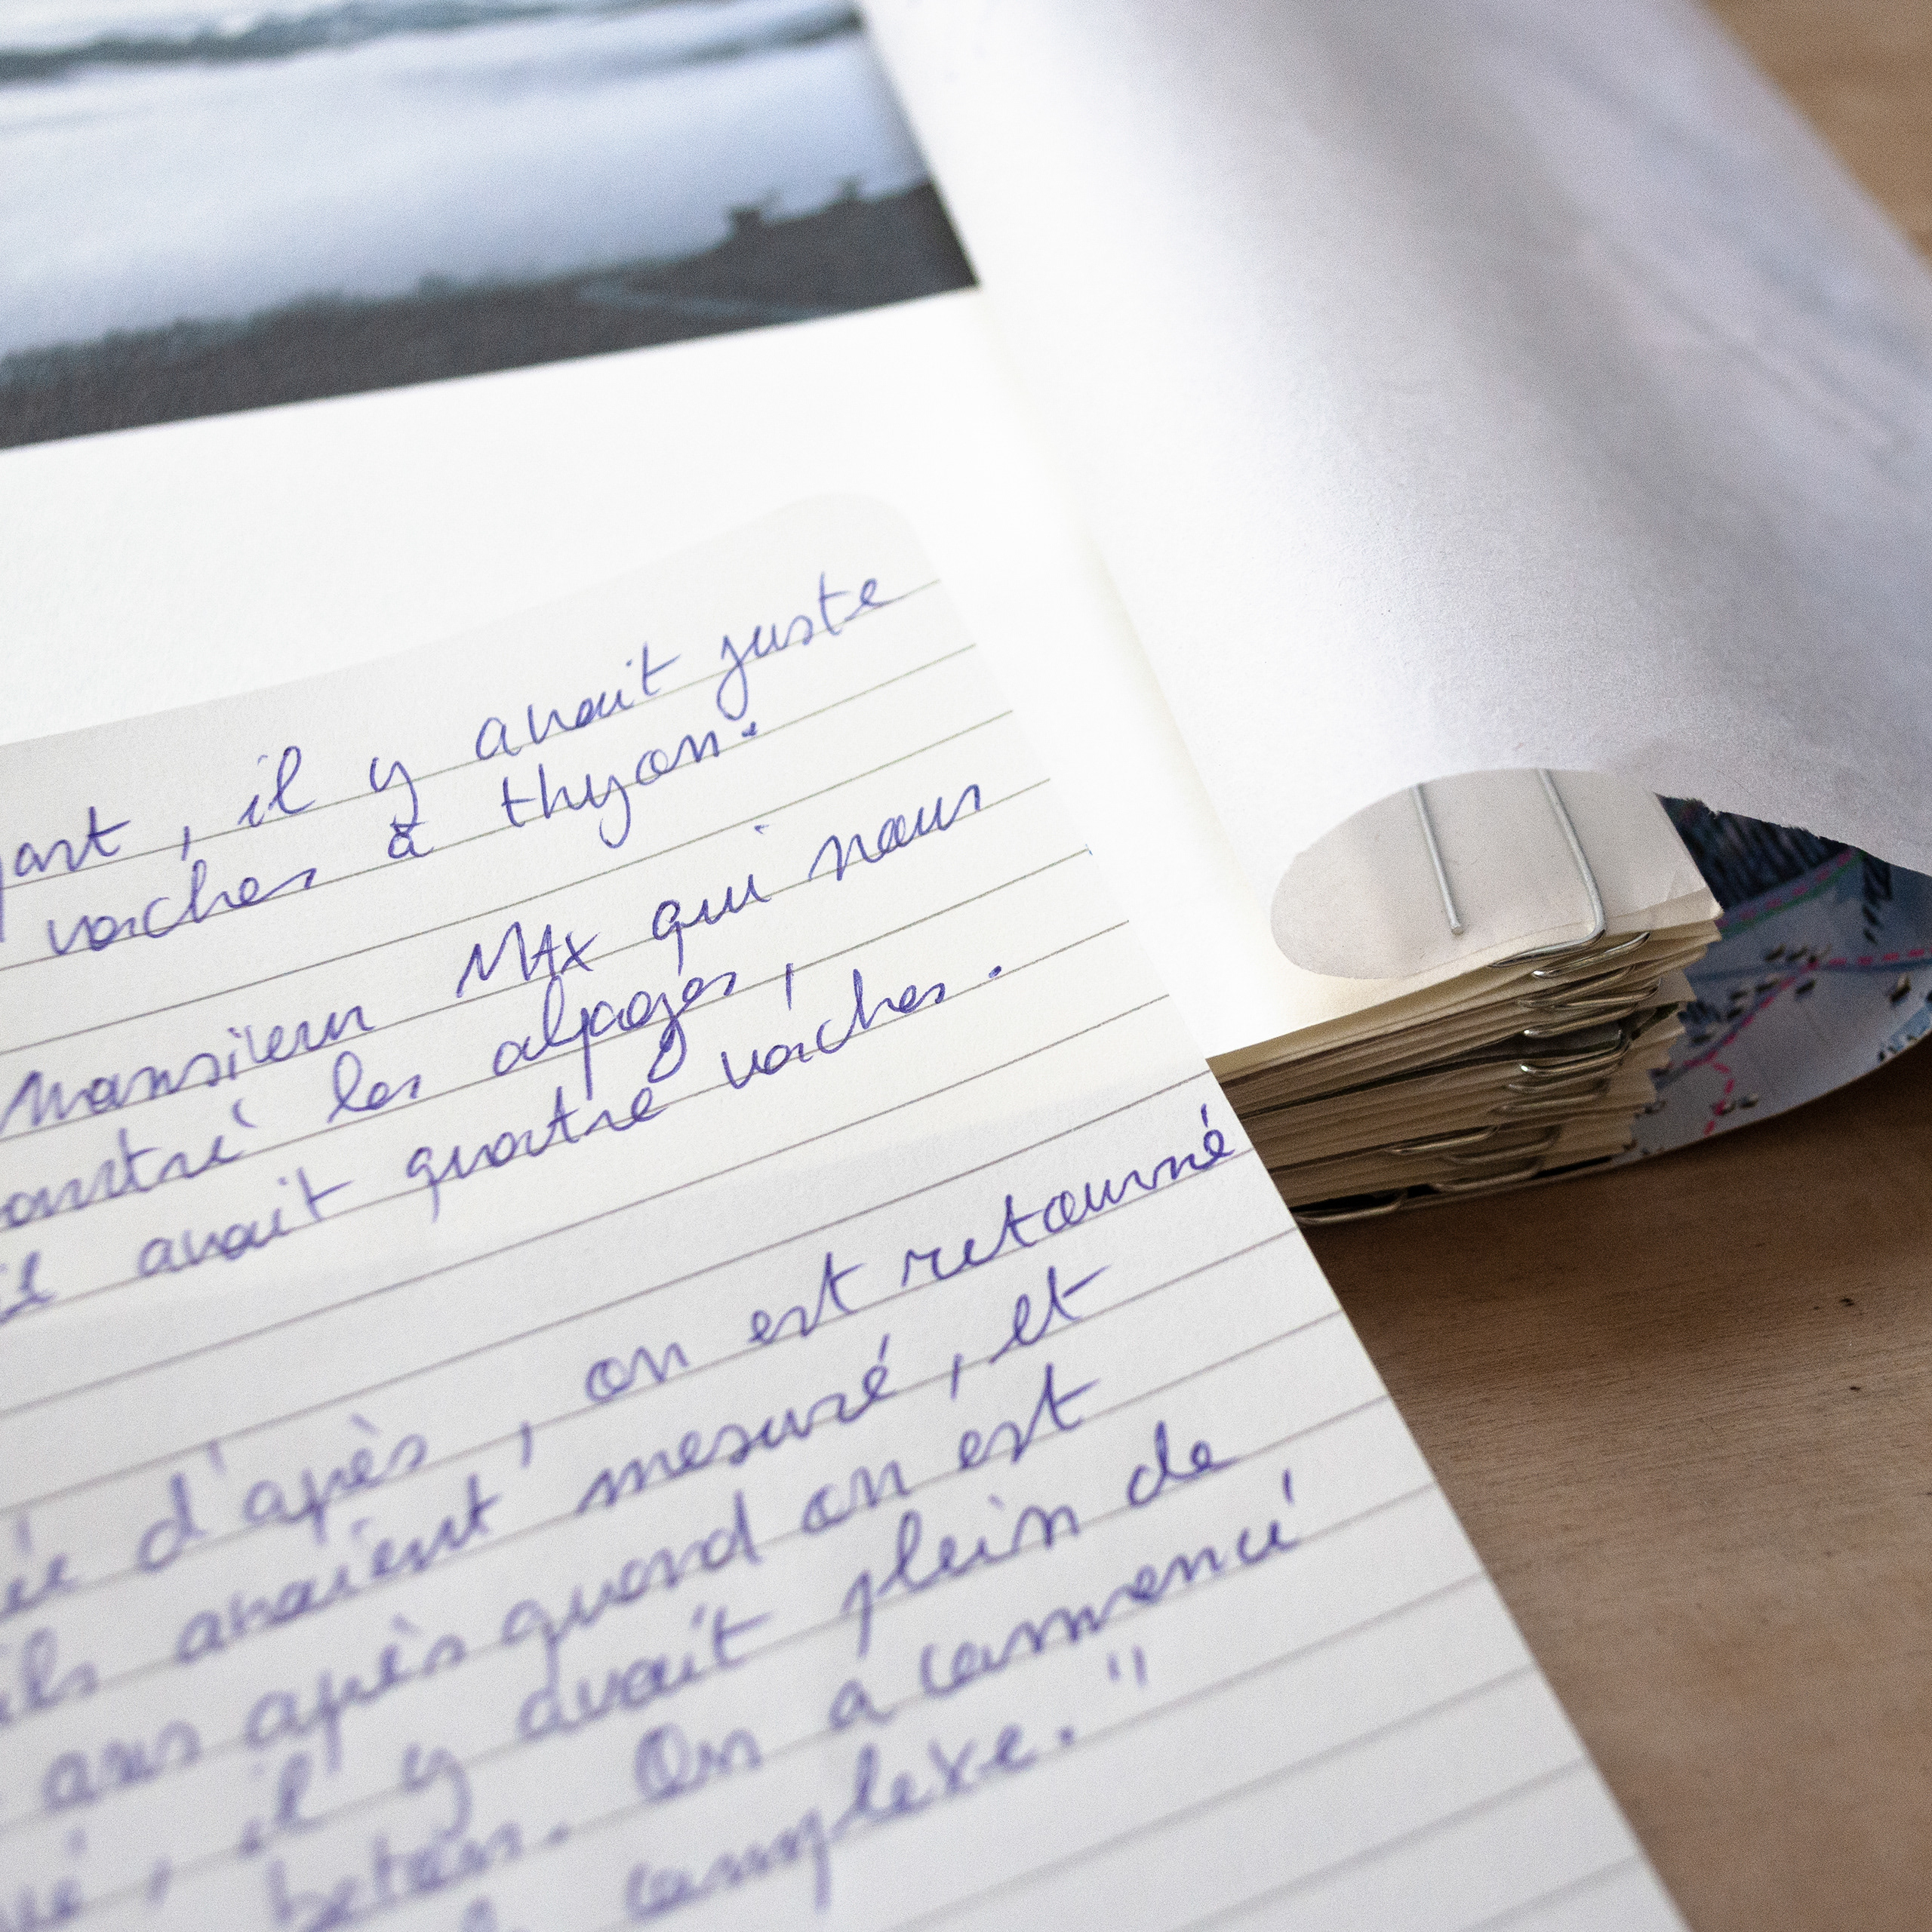 , il y avait juste
vaches à thyon.
Monsieur MAX qui nous
les alpages,
il avait quatre vaches.
d'après, on est retourné
ils avaient mesuré, et
ans après quand on est
, il y avait plein de
beton. On a commencé
complexe."